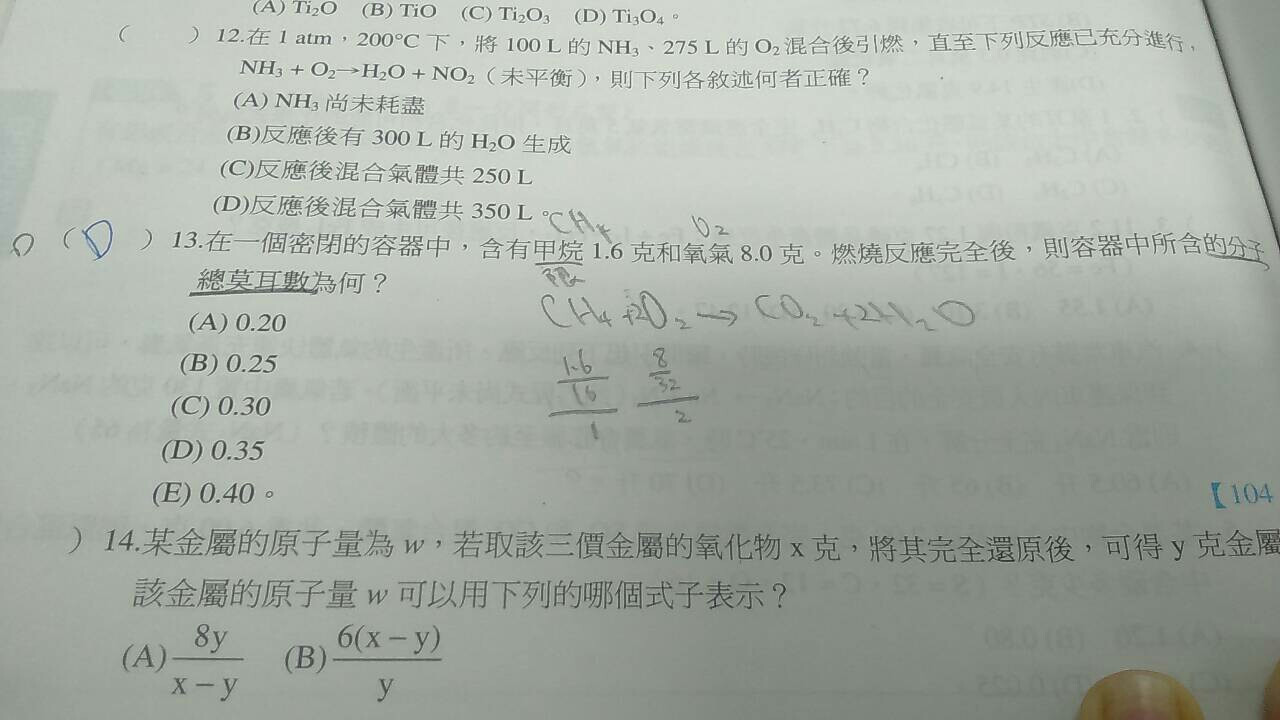 (A) Ti₂O (B) TiO (C) Ti₂O₃ (D) Ti₃O₄。
( ) 12.在 1 atm，200°C 下，將 100 L 的 NH₃、275 L 的 O₂ 混合後引燃，直至下列反應已充分進行，
NH₃ + O₂→H₂O + NO₂（未平衡），則下列各敘述何者正確？
(A) NH₃ 尚未耗盡
(B)反應後有 300 L 的 H₂O 生成
(C)反應後混合氣體共 250 L
(D)反應後混合氣體共 350 L。
CH₄ O₂
( D ) 13.在一個密閉的容器中，含有甲烷 1.6 克和氧氣 8.0 克。燃燒反應完全後，則容器中所含的分子
總莫耳數為何？
限
(A) 0.20
CH₄+2O₂→CO₂+2H₂O
(B) 0.25
1.6/16/1 8/32/2
(C) 0.30
(D) 0.35
(E) 0.40。
【104
) 14.某金屬的原子量為 w，若取該三價金屬的氧化物 x 克，將其完全還原後，可得 y 克金屬
該金屬的原子量 w 可以用下列的哪個式子表示？
(A) 8y/(x－y) (B) 6(x－y)/y